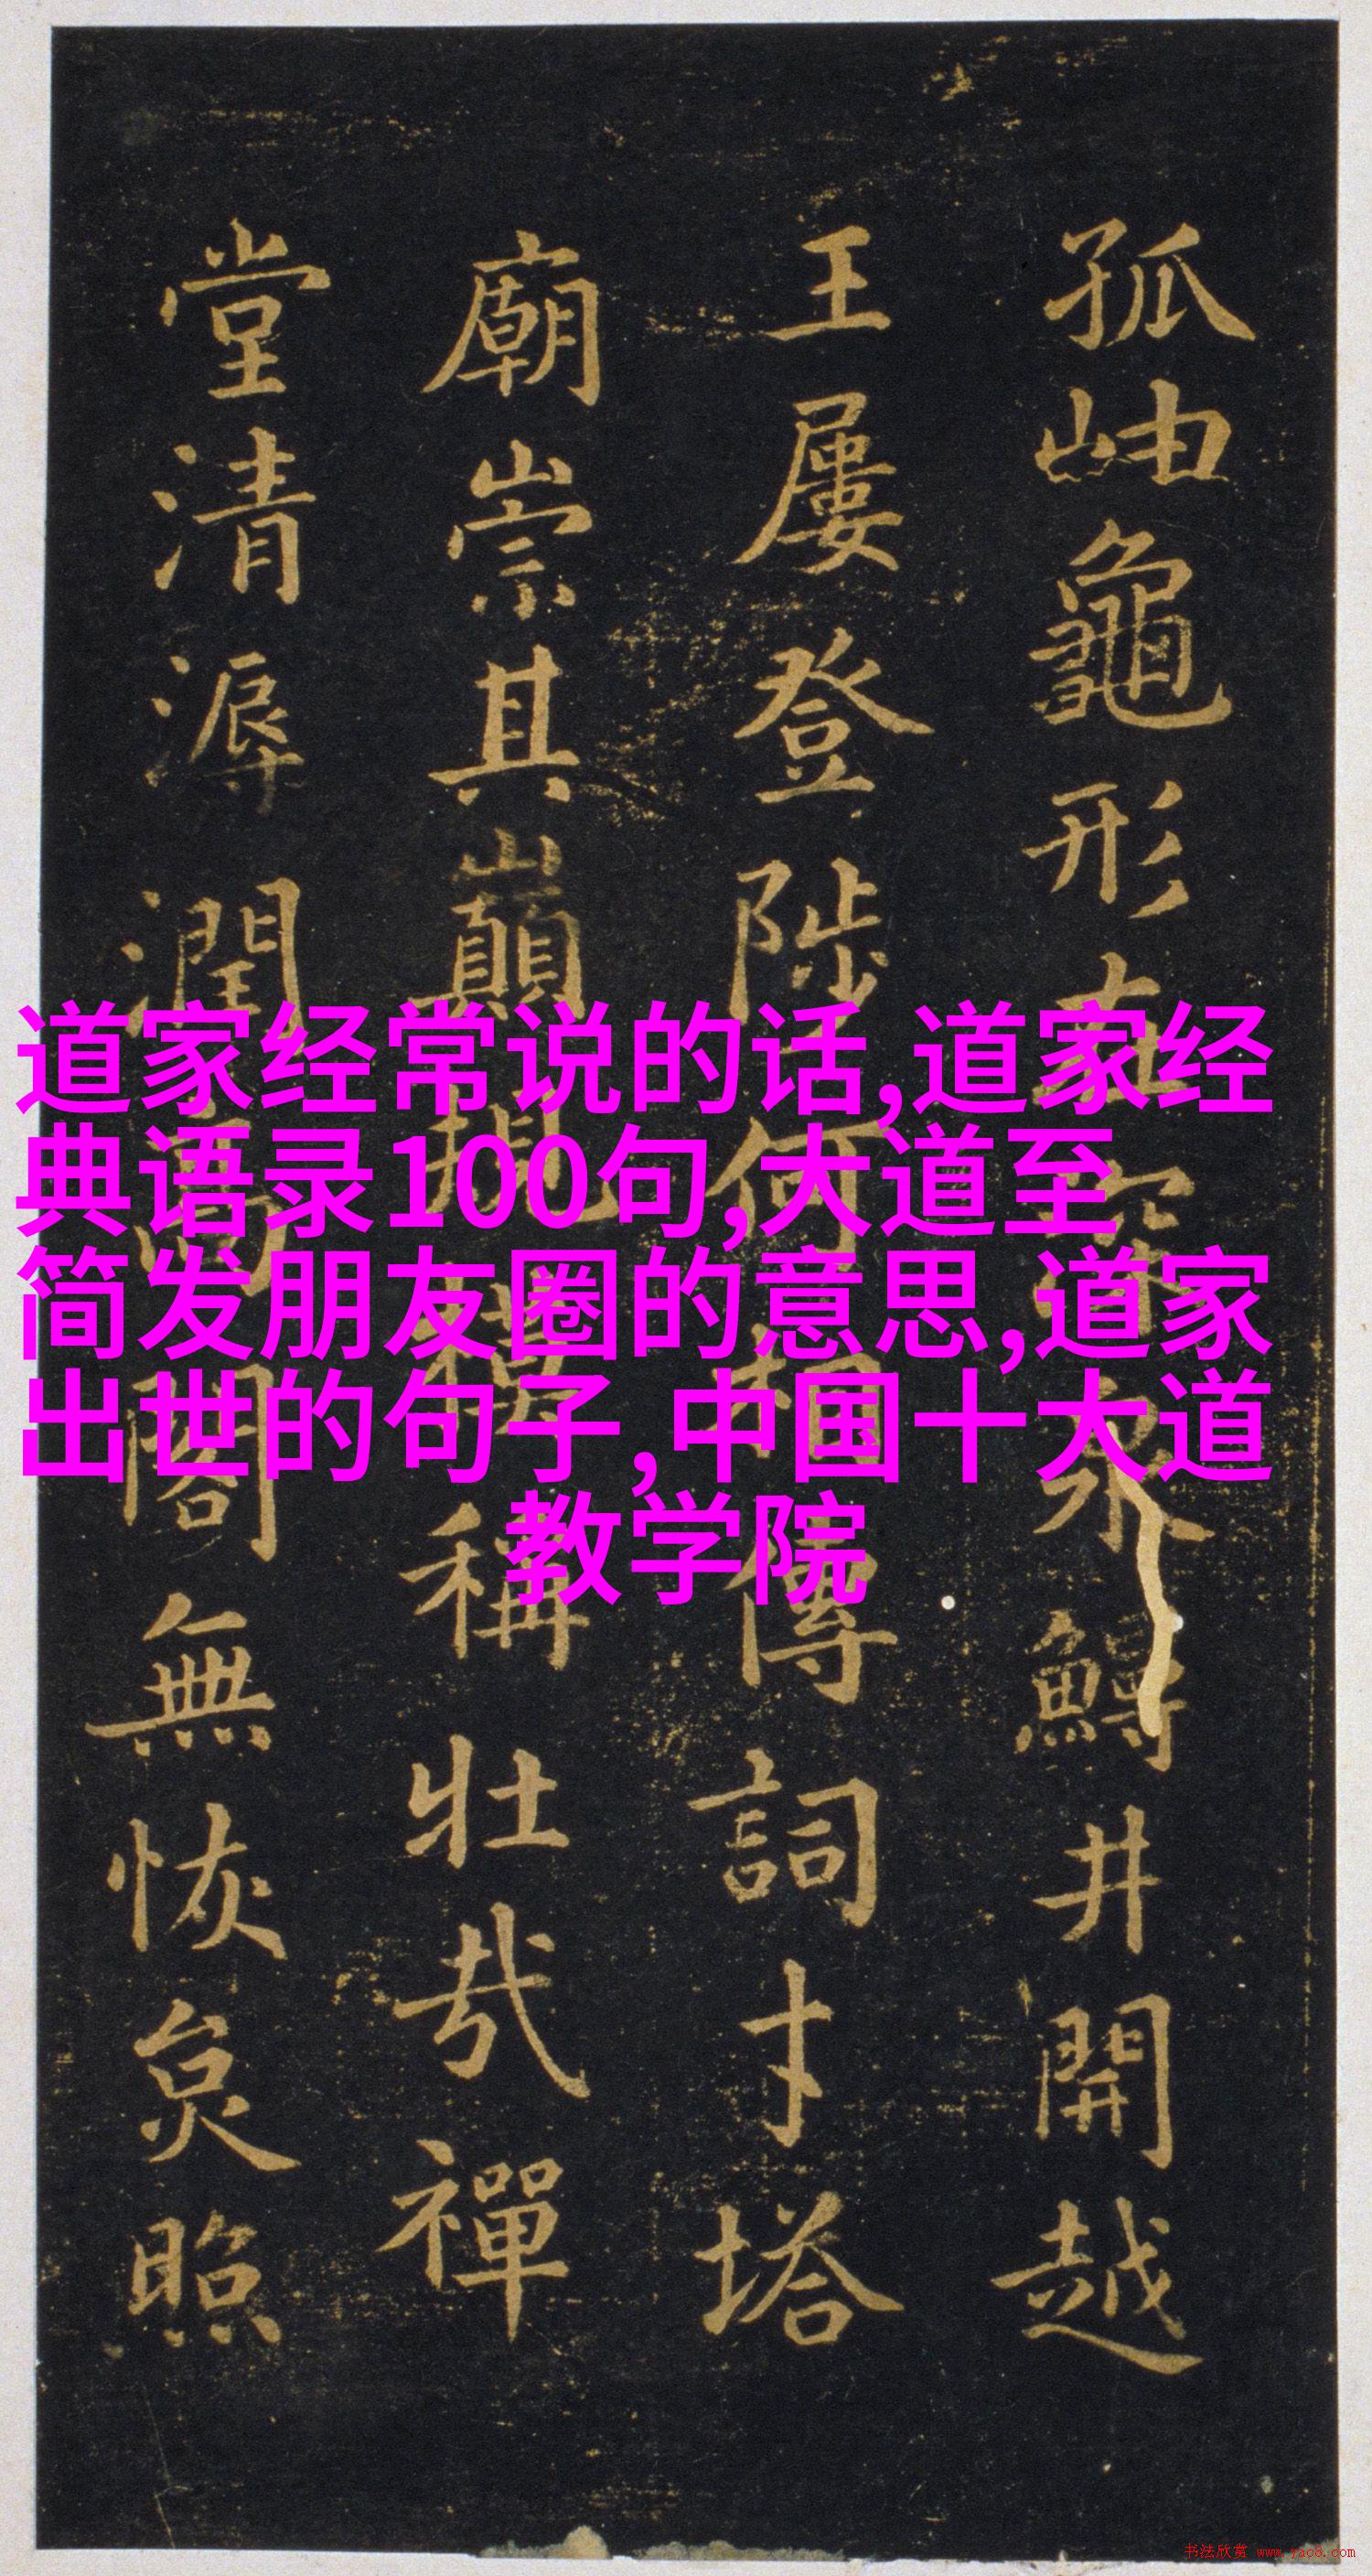 孤岫龜形在寰永鱘井開越
王屢登陟何桓傳詞才塔
廟崇其巔規模稱壯哉禪
堂清溽潤高閣無恢炱照
道家经常说的话,道家经
典语录100句,大道至
简发朋友圈的意思,道家
出世的句子,中国十大道
教学院
书法欣赏 www.yac8.com